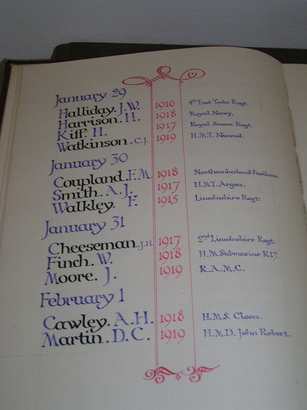 January 29
Halliday. J.W. 1916 4th East Yorks Regt.
Harrison. H. 1918 Royal Navy.
Kiff. H. 1917 Royal Sussex Regt.
Watkinson. C.J. 1919 H.M.T.
January 30
Coupland. E.M. 1918 Northumberland Fusiliers.
Smith. A.J. 1917 H.M.T. Argon.
Walkley. F. 1915 Lincolnshire Regt.
January 31
Cheeseman. J.H. 1917 2nd Lincolnshire Regt.
Finch. W. 1918 H.M. Submarine K17.
Moore. J. 1919 R.A.M.C.
February 1
Cawley. A.H. 1918 H.M.S.
Martin. D.C. 1919 H.M.D. John Robert.